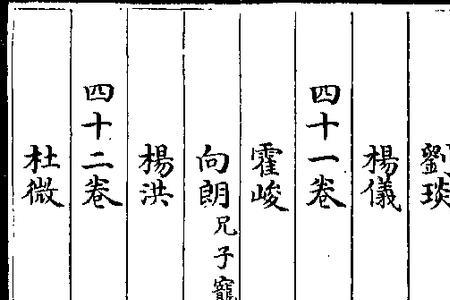 劉琰
楊儀
四十一卷
霍峻
向朗兄子寵
楊洪
四十二卷
杜微